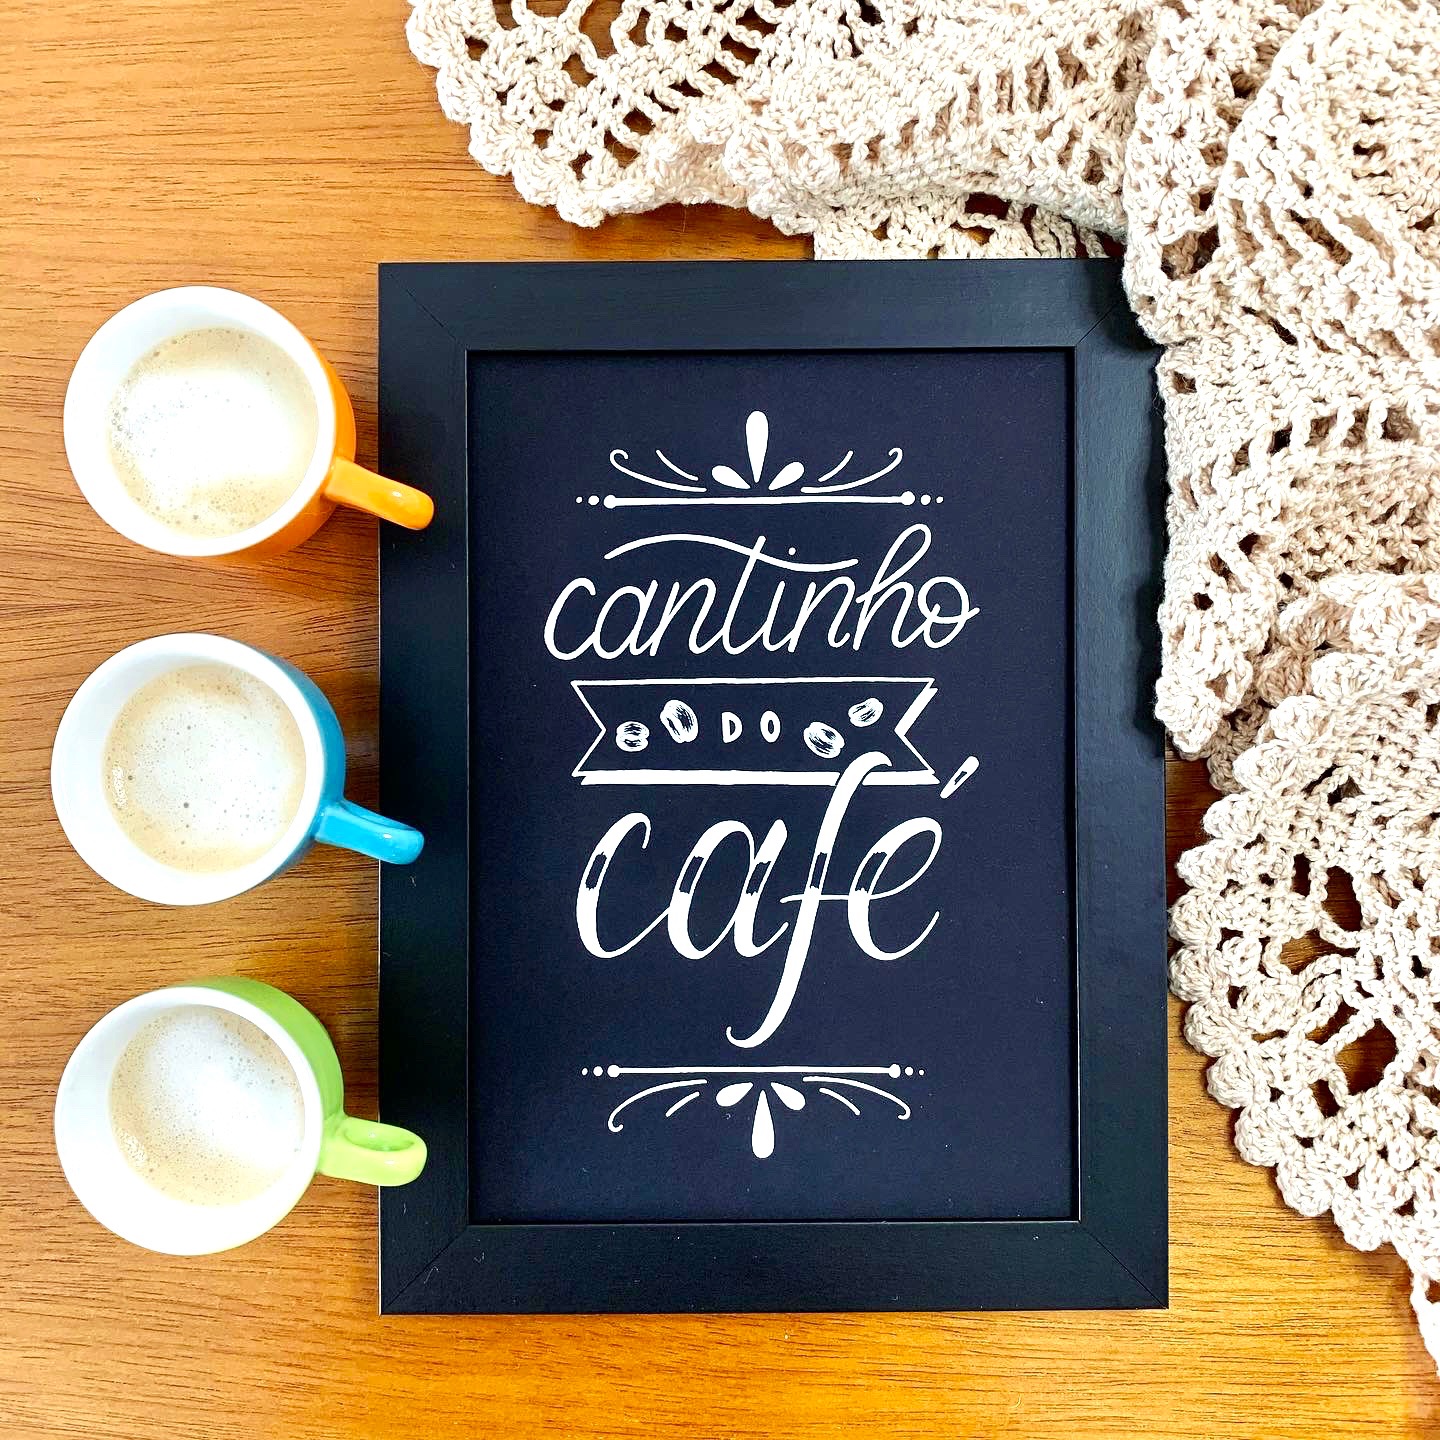 cantinho
DO
café